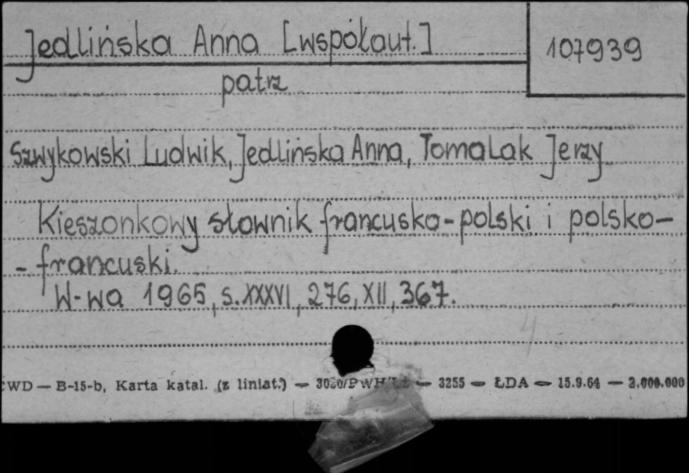 Jedlińska Anna [współaut.]
107939
patrz
Szwykowski Ludwik, Jedlińska Anna, Tomalak Jerzy
Kieszonkowy słownik francusko-polski i polsko-
- francuski.
W-wa 1965, s. XXXVI, 276, XII, 367.
CWD — B-15-b, Karta katal. (z liniat.) — — 3255 — ŁDA — 15.9.64 — 2.000.000